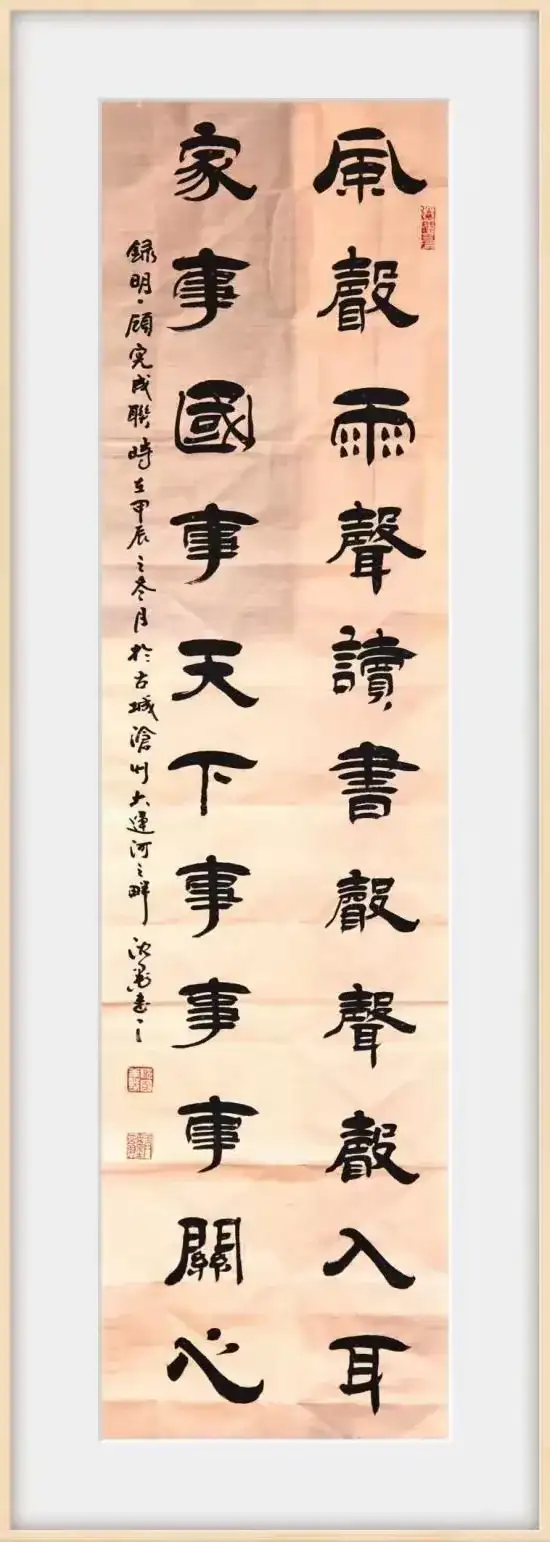 風聲雨聲讀書聲聲聲入耳
家事國事天下事事事關心
録明·顧完成聯時在甲辰之冬月於古城滄州大運河之畔